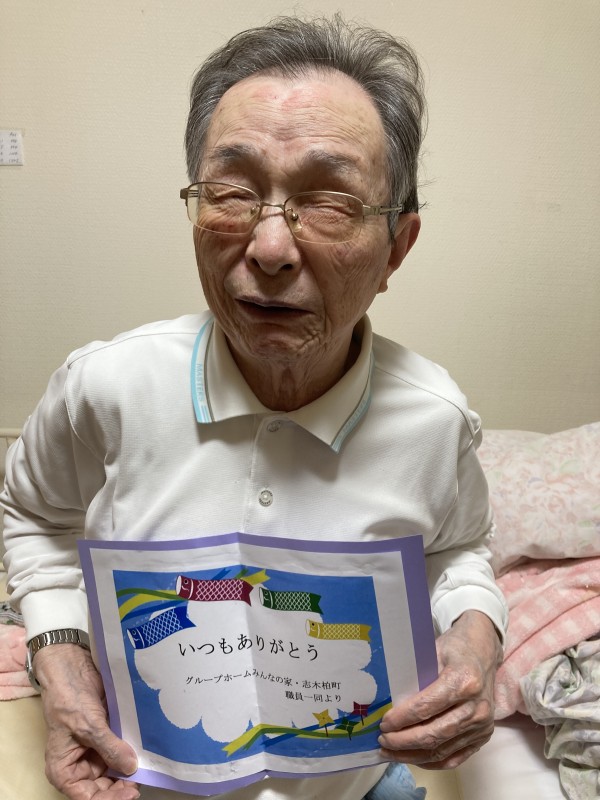 いつもありがとう
グループホームみんなの家・志木柏町
職員一同より